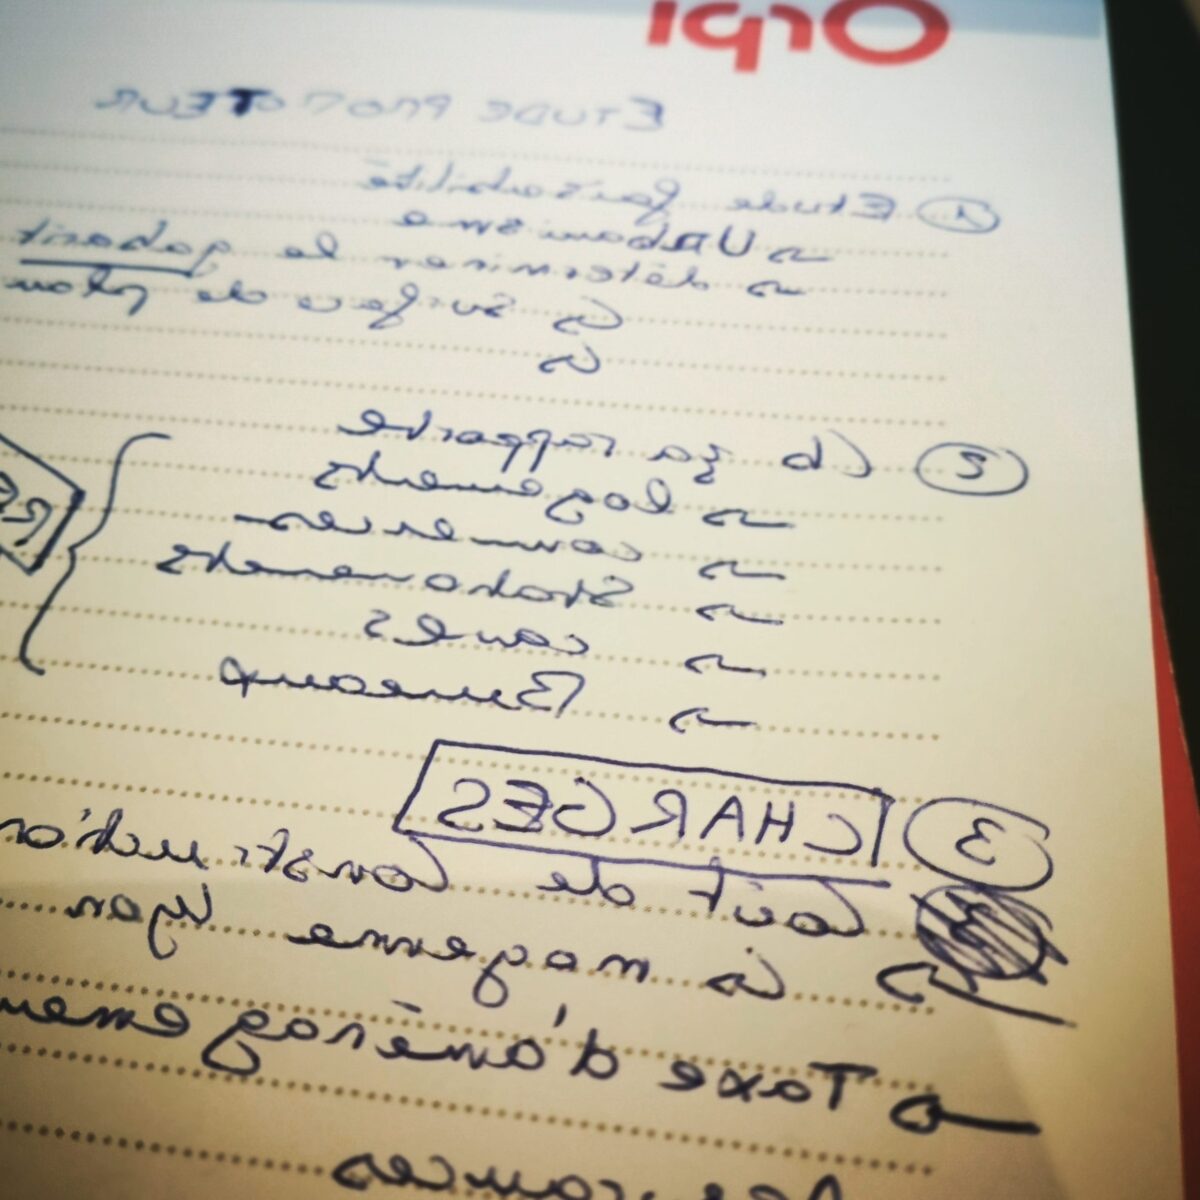 Orpi
ETUDE PROMOTEUR
1 Etude faisabilité
→ Urbanisme
→ déterminer le gabarit
↳ surface de plan
2 Cb ça rapporte
→ logements
→ commerces
→ Stationnements
→ caves
→ Bureaux
3 CHARGES
Coût de Construction
à
Taxe d'aménagemen